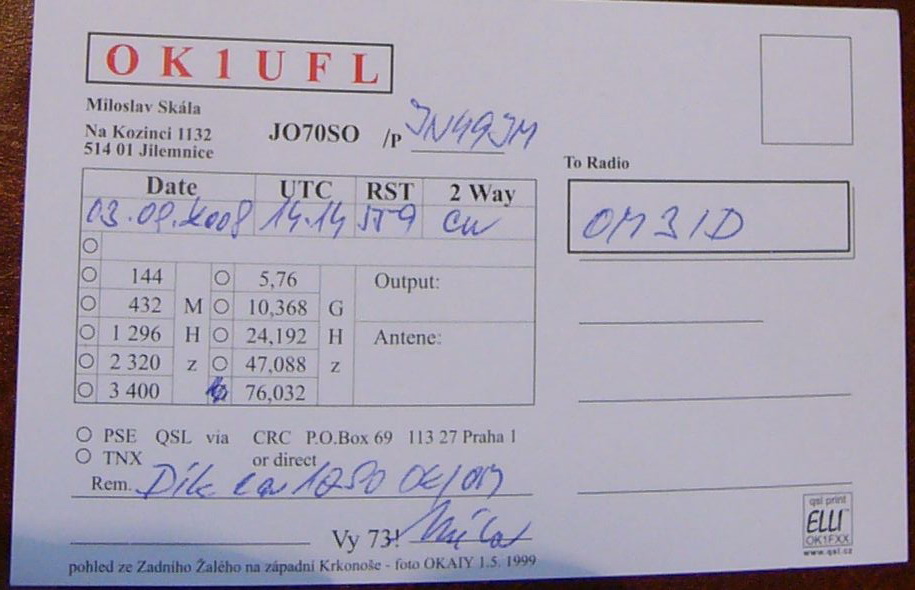 OK1UFL
Miloslav Skála
Na Kozinci 1132
514 01 Jilemnice
JO70SO /P JN49JM
To Radio
OM3ID
Date UTC RST 2 Way
14.14 CW
144 5,76 Output:
432 M 10,368 G
1 296 H 24,192 H Antene:
2 320 z 47,088 z
3 400 76,032
PSE QSL via CRC P.O.Box 69 113 27 Praha 1
TNX or direct
Rem. Dík OK/OM
Vy 73!
pohled ze Zadního Žalého na západní Krkonoše - foto OKAIY 1.5. 1999
qsl print
ELLI
OK1FXX
www.qsl.cz